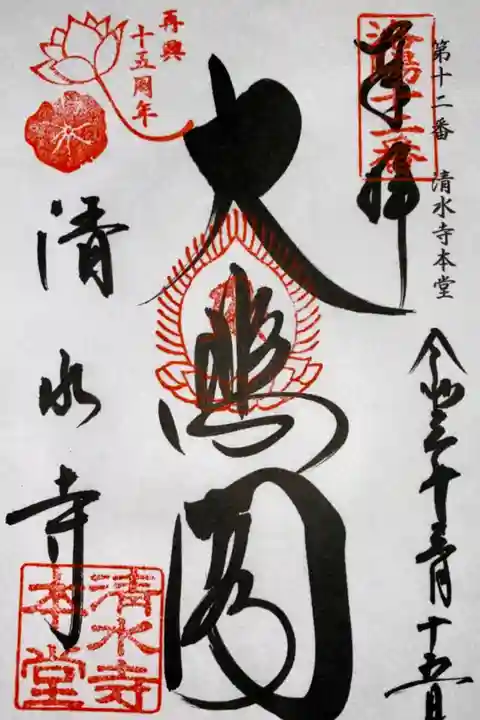 第十二番 清水寺本堂
奉拝
洛陽十二番
令和三年三月十五日
大悲閣
再興
十五周年
清水寺
清水寺
本堂